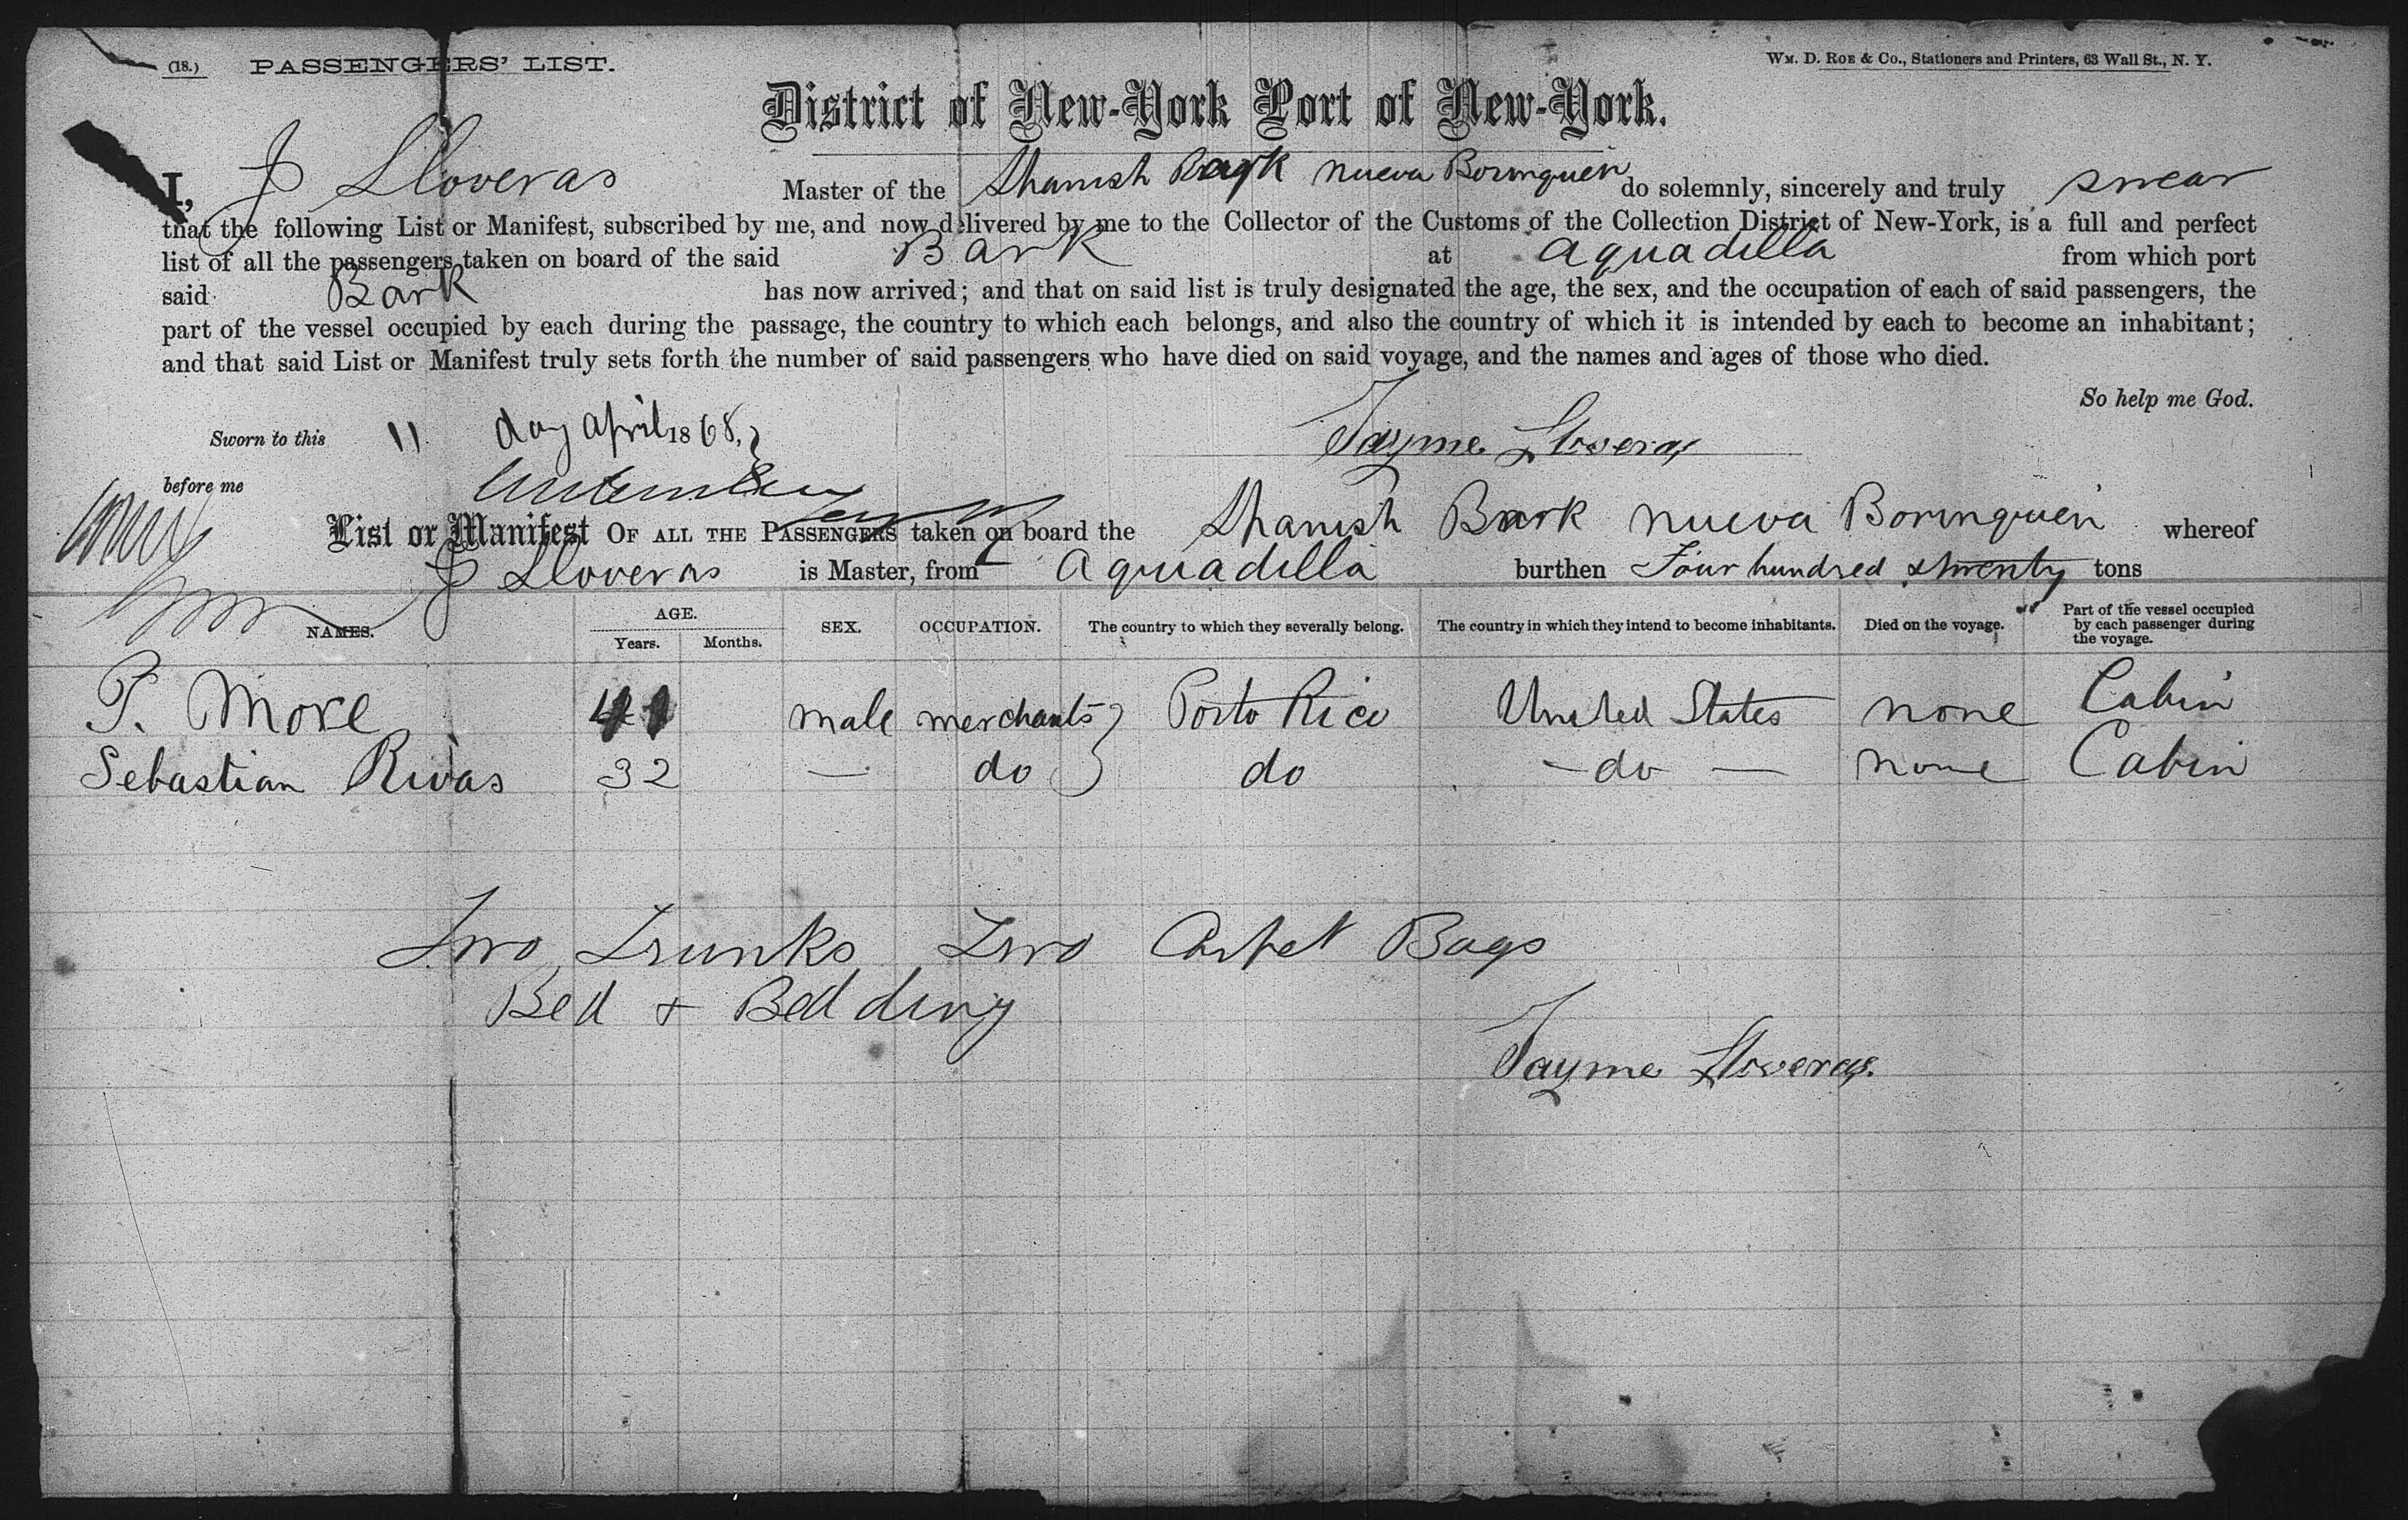 (18.) PASSENGERS' LIST.
WM. D. ROE & CO., Stationers and Printers, 63 Wall St., N. Y.
District of New-York Port of New-York.
I, J Lloveras Master of the Spanish Bark Nueva Borinquen do solemnly, sincerely and truly swear
that the following List or Manifest, subscribed by me, and now delivered by me to the Collector of the Customs of the Collection District of New-York, is a full and perfect
list of all the passengers taken on board of the said Bark at Aquadilla from which port
said Bark has now arrived; and that on said list is truly designated the age, the sex, and the occupation of each of said passengers, the
part of the vessel occupied by each during the passage, the country to which each belongs, and also the country of which it is intended by each to become an inhabitant;
and that said List or Manifest truly sets forth the number of said passengers who have died on said voyage, and the names and ages of those who died.
So help me God.
Sworn to this 11 day April 1868,
Jayme Lloveras
before me
List or Manifest OF ALL THE PASSENGERS taken on board the Spanish Bark Nueva Borinquen whereof
J Lloveras is Master, from Aquadilla burthen Four hundred & twenty tons
NAMES. AGE. Years. Months. SEX. OCCUPATION. The country to which they severally belong. The country in which they intend to become inhabitants. Died on the voyage. Part of the vessel occupied by each passenger during the voyage.
P. More 41 male merchants } Porto Rico United States none Cabin
Sebastian Rivas 32 — do } do — do — none Cabin
Two Trunks Two Carpet Bags
Bed & Bedding
Jayme Lloveras.